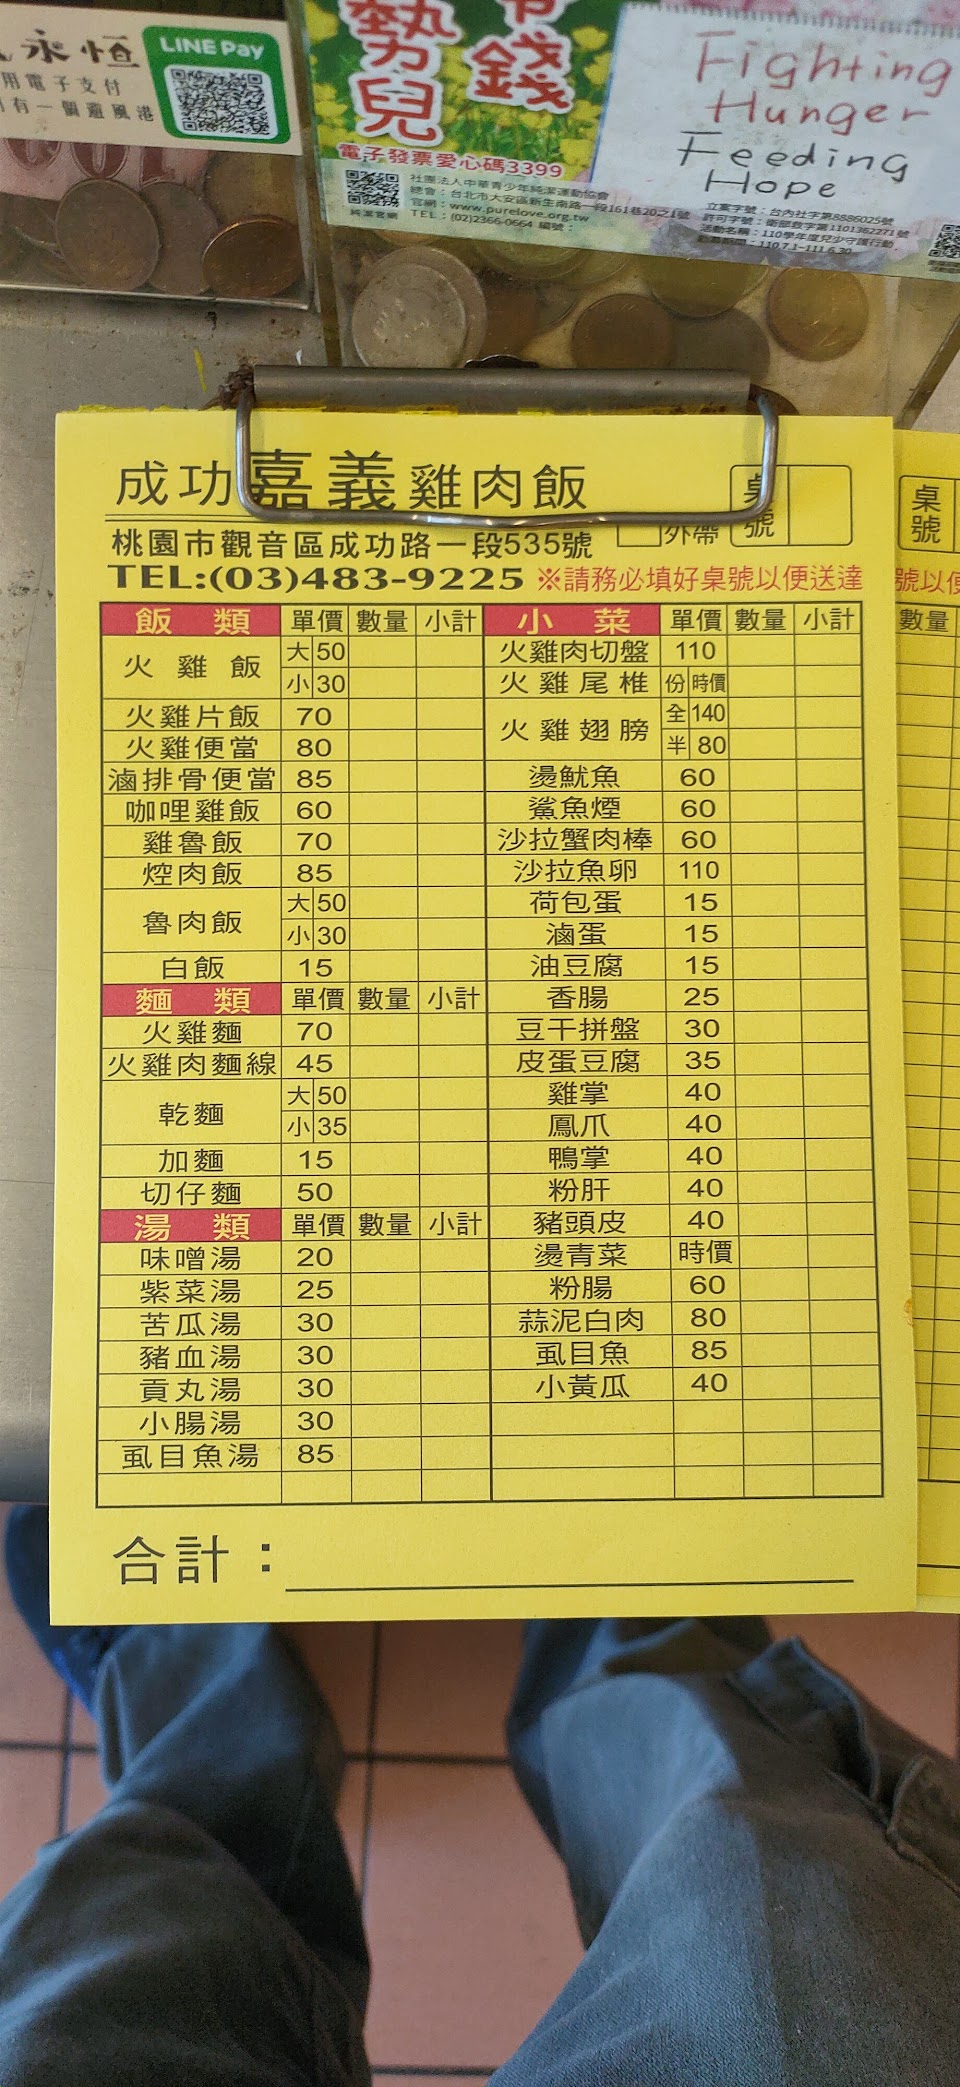 永恒
用電子支付
有一個避風港
LINE Pay
勢兒
錢
電子發票愛心碼3399
社團法人中華青少年純潔運動協會
總會：台北市大安區新生南路一段161巷20之1號
官網：www.purelove.org.tw
TEL：(02)2366-0664 編號：
純潔官網
Fighting
Hunger
Feeding
Hope
立案字號：台內社字第8886025號
許可字號：衛部救字第1101362271號
活動名稱：110學年度兒少守護行動
勸募期間：110.7.1~111.6.30
成功嘉義雞肉飯
外帶 桌號
桃園市觀音區成功路一段535號
TEL:(03)483-9225 ※請務必填好桌號以便送達
飯類 單價 數量 小計
火雞飯 大 50
小 30
火雞片飯 70
火雞便當 80
滷排骨便當 85
咖哩雞飯 60
雞魯飯 70
焢肉飯 85
魯肉飯 大 50
小 30
白飯 15
麵類 單價 數量 小計
火雞麵 70
火雞肉麵線 45
乾麵 大 50
小 35
加麵 15
切仔麵 50
湯類 單價 數量 小計
味噌湯 20
紫菜湯 25
苦瓜湯 30
豬血湯 30
貢丸湯 30
小腸湯 30
虱目魚湯 85
小菜 單價 數量 小計
火雞肉切盤 110
火雞尾椎 份 時價
火雞翅膀 全 140
半 80
燙魷魚 60
鯊魚煙 60
沙拉蟹肉棒 60
沙拉魚卵 110
荷包蛋 15
滷蛋 15
油豆腐 15
香腸 25
豆干拼盤 30
皮蛋豆腐 35
雞掌 40
鳳爪 40
鴨掌 40
粉肝 40
豬頭皮 40
燙青菜 時價
粉腸 60
蒜泥白肉 80
虱目魚 85
小黃瓜 40
合計：
桌號
號以便
數量